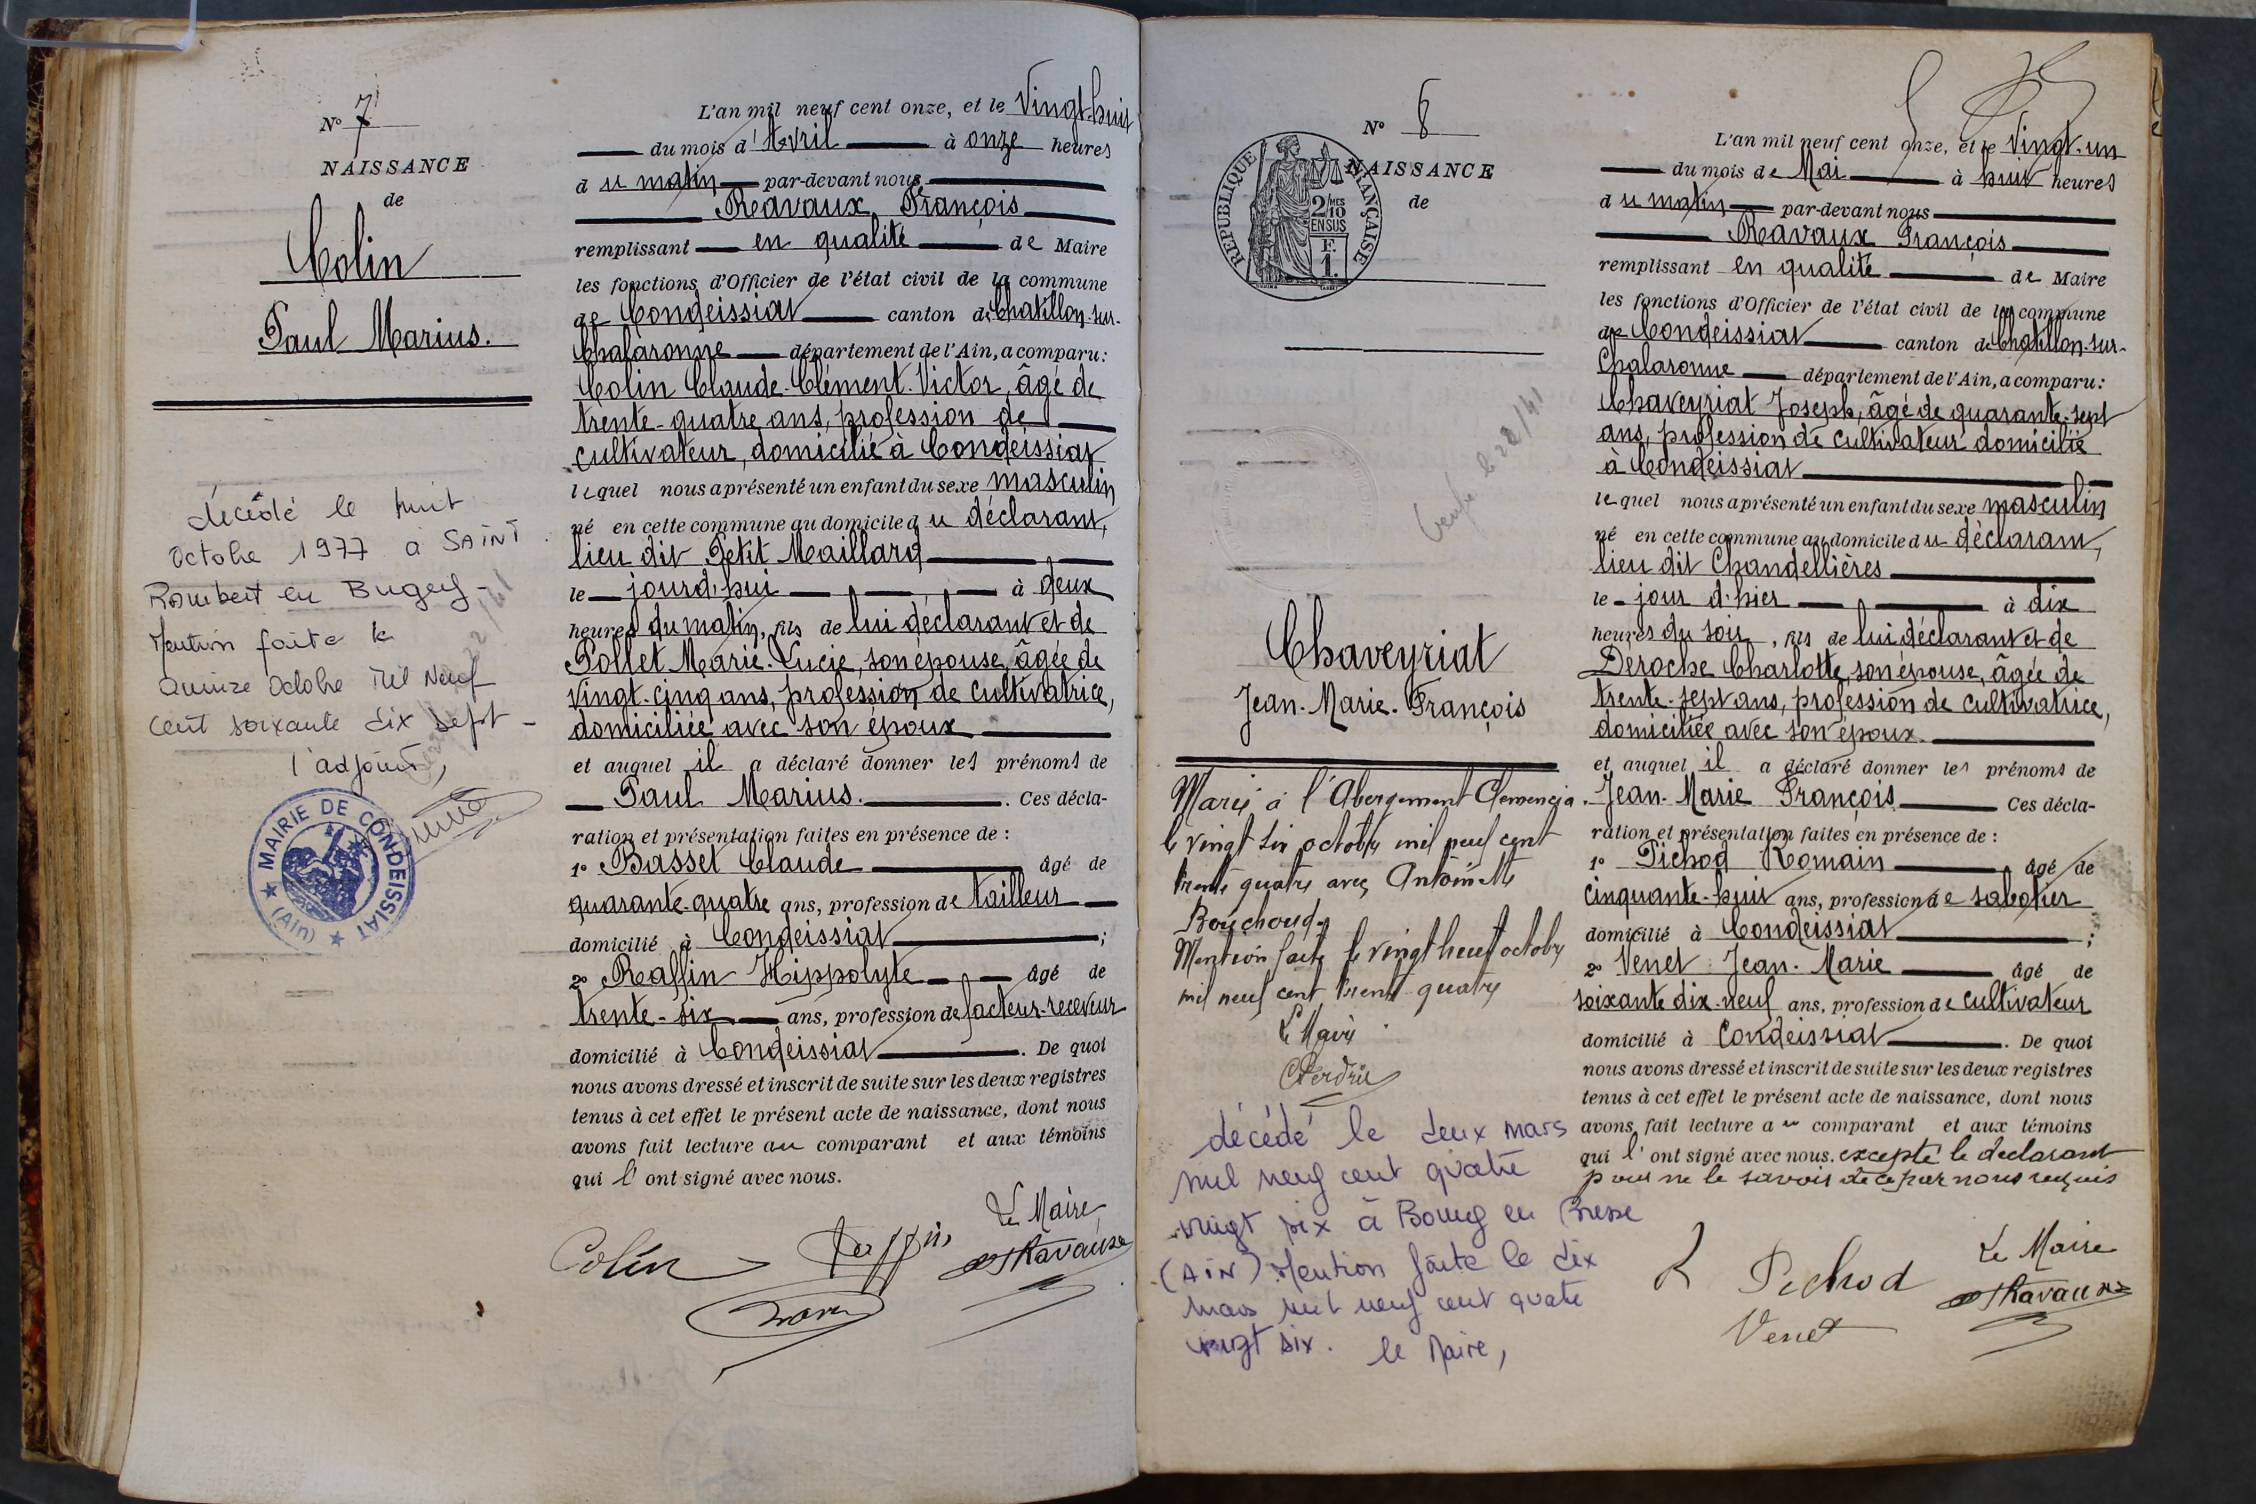 N° 7
NAISSANCE
de
Colin
Paul Marius.
décédé le huit
octobre 1977 à SAINT
Rambert en Bugey -
Mention faite le
quinze octobre mil neuf
cent soixante dix sept -
l'adjoint,
MAIRIE DE CONDEISSIAT
(Ain)
L'an mil neuf cent onze, et le Vingt-huit
du mois d'Avril à onze heures
du matin par-devant nous
Ravaux François
remplissant en qualité de Maire
les fonctions d'Officier de l'état civil de la commune
de Condeissiat canton de Chatillon-sur-
Chalaronne département de l'Ain, a comparu:
Colin Claude-Clément-Victor, âgé de
trente-quatre ans, profession de
cultivateur, domicilié à Condeissiat
lequel nous a présenté un enfant du sexe masculin
né en cette commune au domicile du déclarant,
lieu dit Petit Maillard
le jourd'hui à deux
heures du matin, fils de lui déclarant et de
Pollet Marie-Lucie, son épouse, âgée de
vingt-cinq ans, profession de cultivatrice,
domiciliée avec son époux
et auquel il a déclaré donner les prénoms de
Paul Marius. Ces décla-
ration et présentation faites en présence de :
1° Basset Claude âgé de
quarante-quatre ans, profession de tailleur
domicilié à Condeissiat ;
2° Raffin Hippolyte âgé de
trente-six ans, profession de facteur-receveur
domicilié à Condeissiat. De quoi
nous avons dressé et inscrit de suite sur les deux registres
tenus à cet effet le présent acte de naissance, dont nous
avons fait lecture au comparant et aux témoins
qui l'ont signé avec nous.
Le Maire
Colin Raffin Ravaux
N° 8
NAISSANCE
de
REPUBLIQUE FRANÇAISE
2/10 MES
EN SUS
F.
1.
Chaveyriat
Jean-Marie-François
Marié à l'Abergement Clemencia
le vingt six octobre mil neuf cent
trente quatre avec Antoinette
Bouchoud
Mention faite le vingt neuf octobre
mil neuf cent trente quatre
Le Maire
décédé le deux mars
mil neuf cent quatre
vingt six à Bourg en Bresse
(AIN) Mention faite le dix
mars mil neuf cent quatre
vingt six. le Maire,
L'an mil neuf cent onze, et le Vingt-un
du mois de Mai à huit heures
du matin par-devant nous
Ravaux François
remplissant en qualité de Maire
les fonctions d'Officier de l'état civil de la commune
de Condeissiat canton de Chatillon-sur-
Chalaronne département de l'Ain, a comparu:
Chaveyriat Joseph, âgé de quarante-sept
ans, profession de cultivateur domicilié
à Condeissiat
lequel nous a présenté un enfant du sexe masculin
né en cette commune au domicile du déclarant,
lieu dit Chandellières
le jour d'hier à dix
heures du soir, fils de lui déclarant et de
Deroche Charlotte, son épouse, âgée de
trente-sept ans, profession de cultivatrice,
domiciliée avec son époux.
et auquel il a déclaré donner les prénoms de
Jean-Marie François Ces décla-
ration et présentation faites en présence de :
1° Pichod Romain âgé de
cinquante-huit ans, profession de sabotier
domicilié à Condeissiat ;
2° Venet Jean-Marie âgé de
soixante dix-neuf ans, profession de cultivateur
domicilié à Condeissiat. De quoi
nous avons dressé et inscrit de suite sur les deux registres
tenus à cet effet le présent acte de naissance, dont nous
avons fait lecture au comparant et aux témoins
qui l'ont signé avec nous. excepté le déclarant
pour ne le savoir de ce par nous requis
Le Maire
Pichod Ravaux
Venet